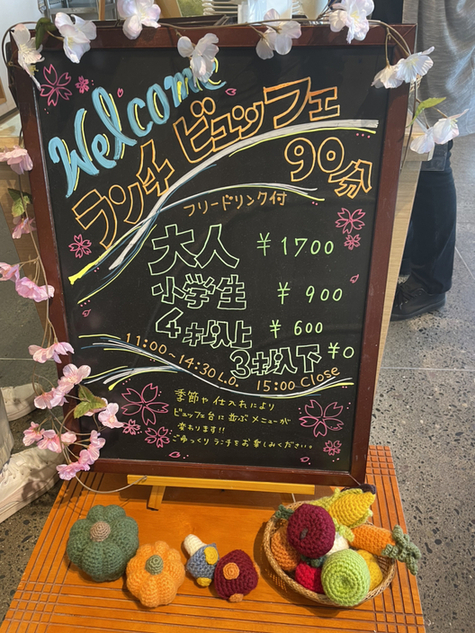 Welcome
ランチ ビュッフェ
90分
フリードリンク付
大人 ¥1700
小学生 ¥900
4才以上 ¥600
3才以下 ¥0
11:00~14:30 L.O. 15:00 Close
季節や仕入れにより
ビュッフェ台に並ぶメニューが
変わります!!
ごゆっくりランチをお楽しみください。